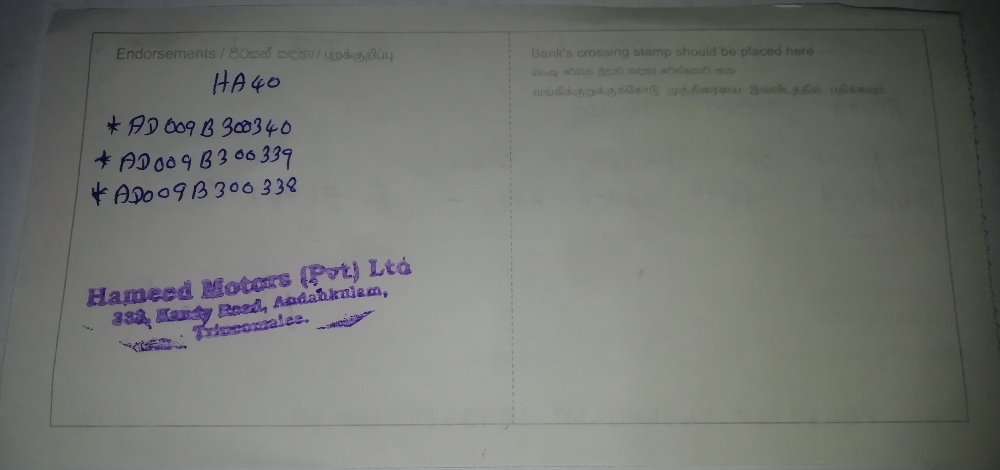 Endorsements / පිටසන් සඳහා / புறக்குறிப்பு
HA40
* AD009B300340
* AD009B300339
* AD009B300338
Hameed Motors (Pvt) Ltd
333, Kandy Road, Andankulam,
Trincomalee.
Bank's crossing stamp should be placed here
வங்கிக்குறுக்குக்கோடு முத்திரையை இவ்விடத்தில் பதிக்கவும்